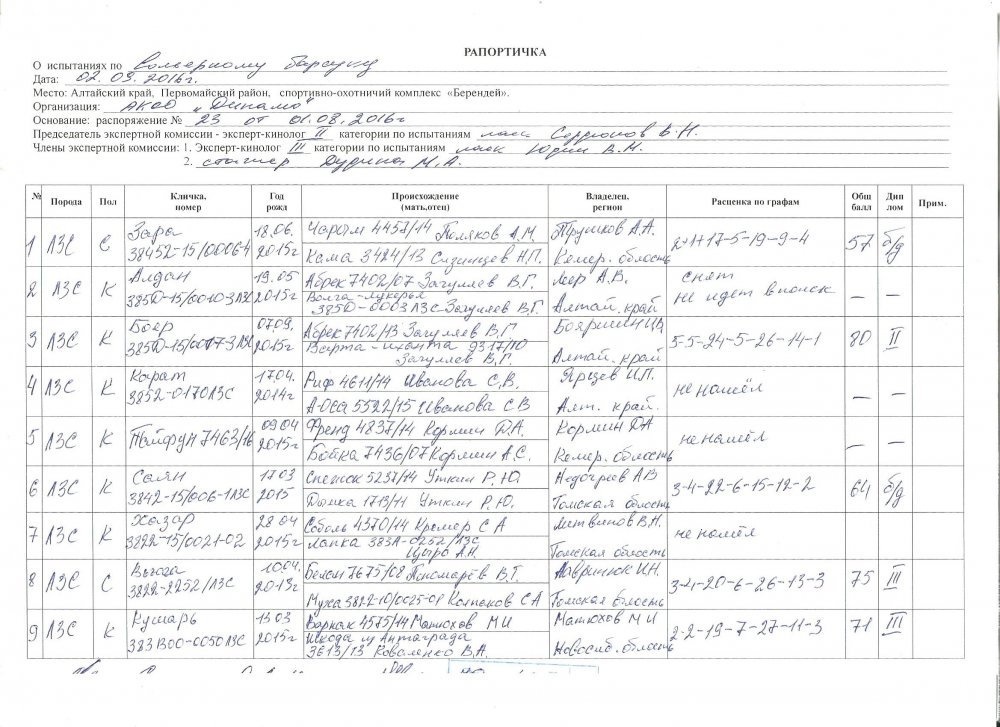 РАПОРТИЧКА
О испытаниях по вольерному барсуку
Дата: 02. 09. 2016г.
Место: Алтайский край, Первомайский район, спортивно-охотничий комплекс «Берендей».
Организация: АКОО „Динамо"
Основание: распоряжение № 23 от 01.08.2016г
Председатель экспертной комиссии - эксперт-кинолог II категории по испытаниям лаек Сердюков В.Н.
Члены экспертной комиссии: 1. Эксперт-кинолог III категории по испытаниям лаек Юдин В.М.
2. стажер Дудина М.А.
№ Порода Пол Кличка, номер Год рожд Происхождение (мать,отец) Владелец, регион Расценка по графам Общ балл Дип лом Прим.
1 ЛЗС С Зара 18.06. Чарым 4458/14 Поляков А.М. Трушков А.А. 2-1-17-5-19-9-4 57 б/д
38452-15/0006-4 2015г Кама 3424/13 Сизинцев Н.П. Кемер. область
2 ЛЗС К Алдан 19.05 Абрек 7402/07 Загуляев В.Г. А.В. снят
3850-15/0010-3ЛЗС 2015г Волга-лукерья Алтай. край не идет в поиск — —
3850-0003 ЛЗС-Загуляев В.Г.
3 ЛЗС К Боер 07.09. Абрек 7402/13 Загуляев В.Г 5-5-24-5-26-14-1 80 II
3850-15/0017-3ЛЗС 2015г Верта-иханта 9317/10 Алтай. край
Загуляев В.Г
4 ЛЗС К Карат 17.04. Риф 4611/14 Иванова С.В. Ярцев И.П. не нашёл — —
3852-0170ЛЗС 2014г А-Оса 5522/15 Иванова С В Алт. край.
5 ЛЗС К Тайфун 7463/16 09.04 Френд 4837/14 Кормин Д.А. Кормин ДА не нашёл — —
2015г Бойка 7436/07 Кормин А.С. Кемер. область
6 ЛЗС К Саян 17.03 Снежок 5237/14 Уткин Р.Ю. А В 3-4-22-6-15-12-2 64 б/д
3842-15/006-1ЛЗС 2015 Дымка 1713/11 Уткин Р.Ю. Томская область
7 ЛЗС К Хазар 28 04 Соболь 4370/14 Кремер С А Литвинов В.Н. не нашёл
3822-15/0021-02 2015г лапка 383А-0252/ЛЗС Томская область
Цыро А.Н.
8 ЛЗС С Вьюга 10.04. Белси 7675/08 Пономарёв В.Т. Лавринюк И.Н. 3-4-20-6-26-13-3 75 III
3822-2252/ЛЗС 2013г Муха 3822-10/0025-01 Колпаков С А Томская область
9 ЛЗС К Кумарь 13 03 Варнак 4575/14 Матюхов М И Матюхов М И 2-2-19-7-27-11-3 71 III
383В00-0050ЛЗС 2015г Шкода из Антаграда Новосиб. область
3613/13 Коваленко В.А.